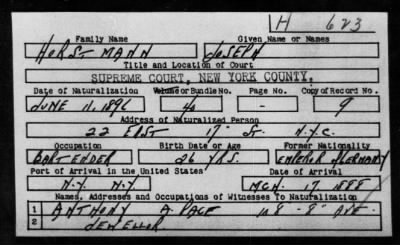 H 623
Family Name Given Name or Names
HORSTMANN JOSEPH
Title and Location of Court
SUPREME COURT, NEW YORK COUNTY.
Date of Naturalization Volume or Bundle No. Page No. Copy of Record No.
JUNE 11, 1896 40 - 9
Address of Naturalized Person
22 EAST 17" St. N.Y.C.
Occupation Birth Date or Age Former Nationality
BARTENDER 26 YRS. EMPEROR GERMANY
Port of Arrival in the United States Date of Arrival
N.Y. N.Y. MCH. 17 1888
Names, Addresses and Occupations of Witnesses To Naturalization
1 ANTHONY A. PAGE 8" AVE
2 JEWELLOR